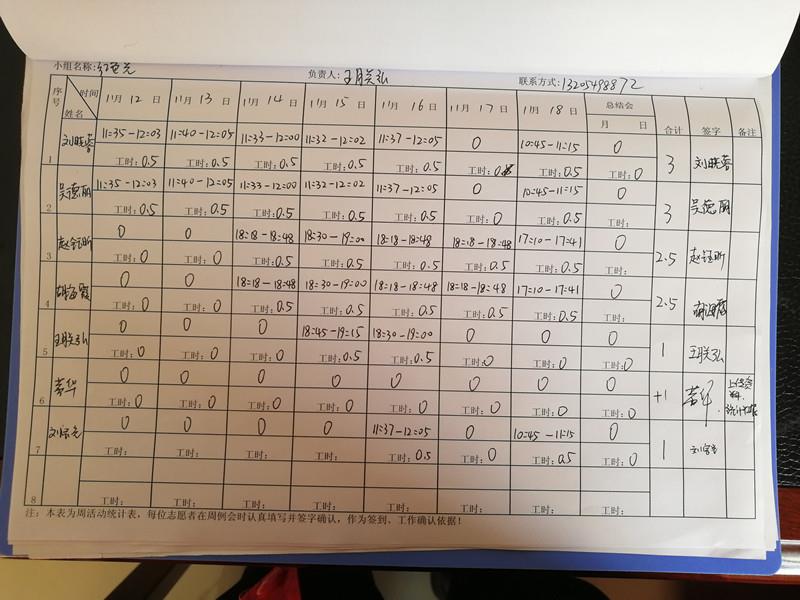 小组名称: 负责人: 王月关弘 联系方式: 13205498872
序号 时间 姓名 11月 12 日 11月 13 日 11月 14 日 11月 15 日 11月 16 日 11月 17 日 11月 18 日 总结会 月 日 合计 签字 备注
1 刘晓蓉 11:35-12:03 11:40-12:05 11:33-12:00 11:32-12:02 11:37-12:05 0 10:45-11:15 0 3 刘晓蓉
工时:0.5 工时:0.5 工时:0.5 工时:0.5 工时:0.5 工时:0 工时:0.5 工时:0
2 吴德丽 11:35-12:03 11:40-12:05 11:33-12:00 11:32-12:02 11:37-12:05 0 10:45-11:15 0 3 吴德丽
工时:0.5 工时:0.5 工时:0.5 工时:0.5 工时:0.5 工时:0 工时:0.5 工时:
3 赵钰昕 0 0 18:18-18:48 18:30-19:00 18:18-18:48 18:18-18:48 17:10-17:41 0 2.5 赵钰昕
工时:0 工时:0 工时:0.5 工时:0.5 工时:0.5 工时:0.5 工时:0.5 工时:
4 胡海霞 0 0 18:18-18:48 18:30-19:00 18:18-18:48 18:18-18:48 17:10-17:41 0 2.5 胡海霞
工时:0 工时:0 工时:0.5 工时:0.5 工时:0.5 工时:0.5 工时:0.5 工时:
5 王月关弘 0 0 0 18:45-19:15 18:30-19:00 0 0 0 1 王月关弘
工时:0 工时:0 工时:0 工时:0.5 工时:0.5 工时:0 工时:0 工时:0
6 0 0 0 0 0 0 0 0 +1
工时:0 工时:0 工时:0 工时:0 工时:0 工时:0 工时:0 工时:0
7 0 0 0 0 11:37-12:05 0 10:45-11:15 0 1
工时: 工时: 工时: 工时: 工时:0.5 工时:0 工时:0.5 工时:0
8
工时: 工时: 工时: 工时: 工时: 工时: 工时: 工时:
注:本表为周活动统计表,每位志愿者在周例会时认真填写并签字确认,作为签到、工作确认依据!